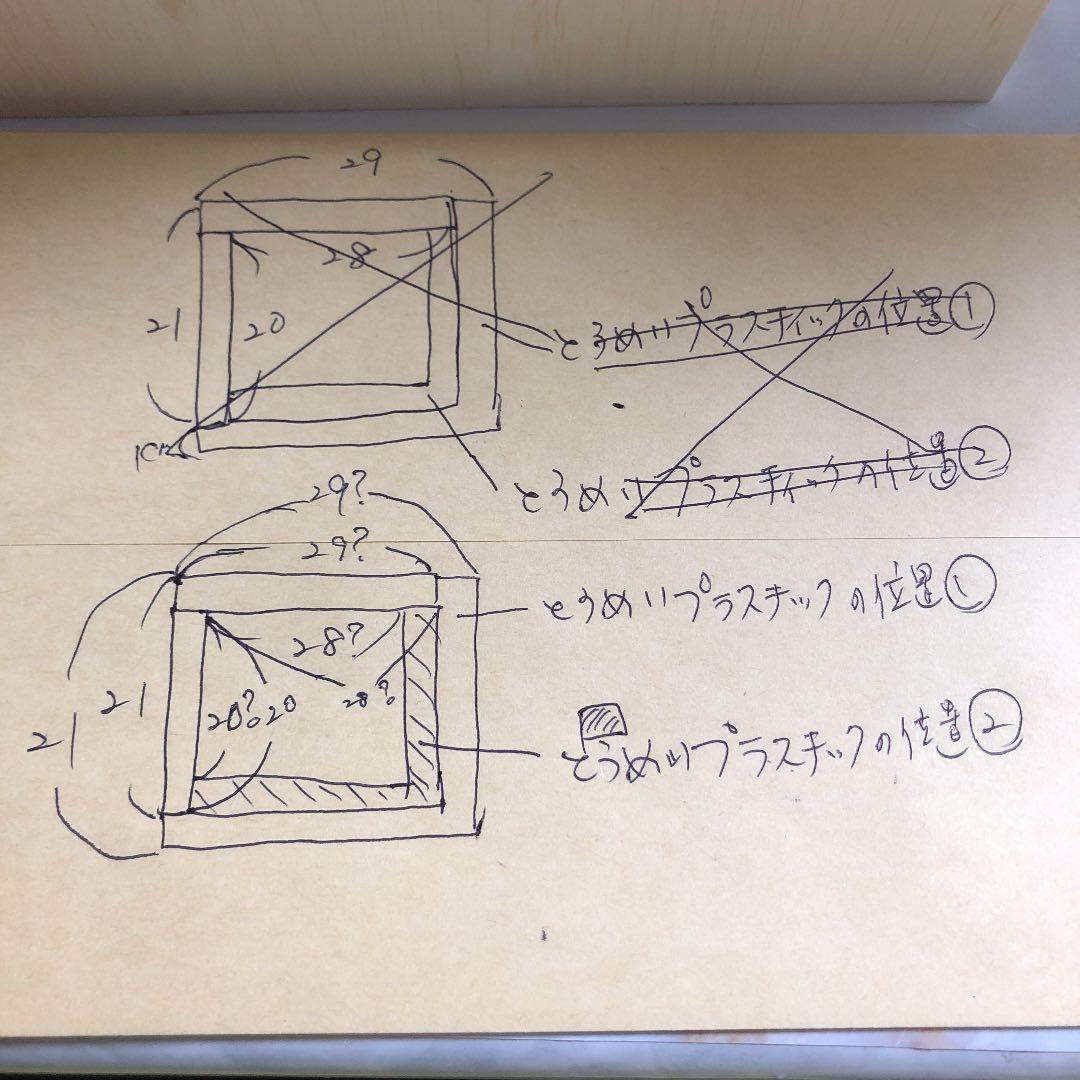 29
28
21
20
1cm
とうめいプラスティックの位置①
とうめいプラスティックの位置②
29?
29?
とうめいプラスチックの位置①
28?
21
20?
20
28?
21
とうめいプラスチックの位置②